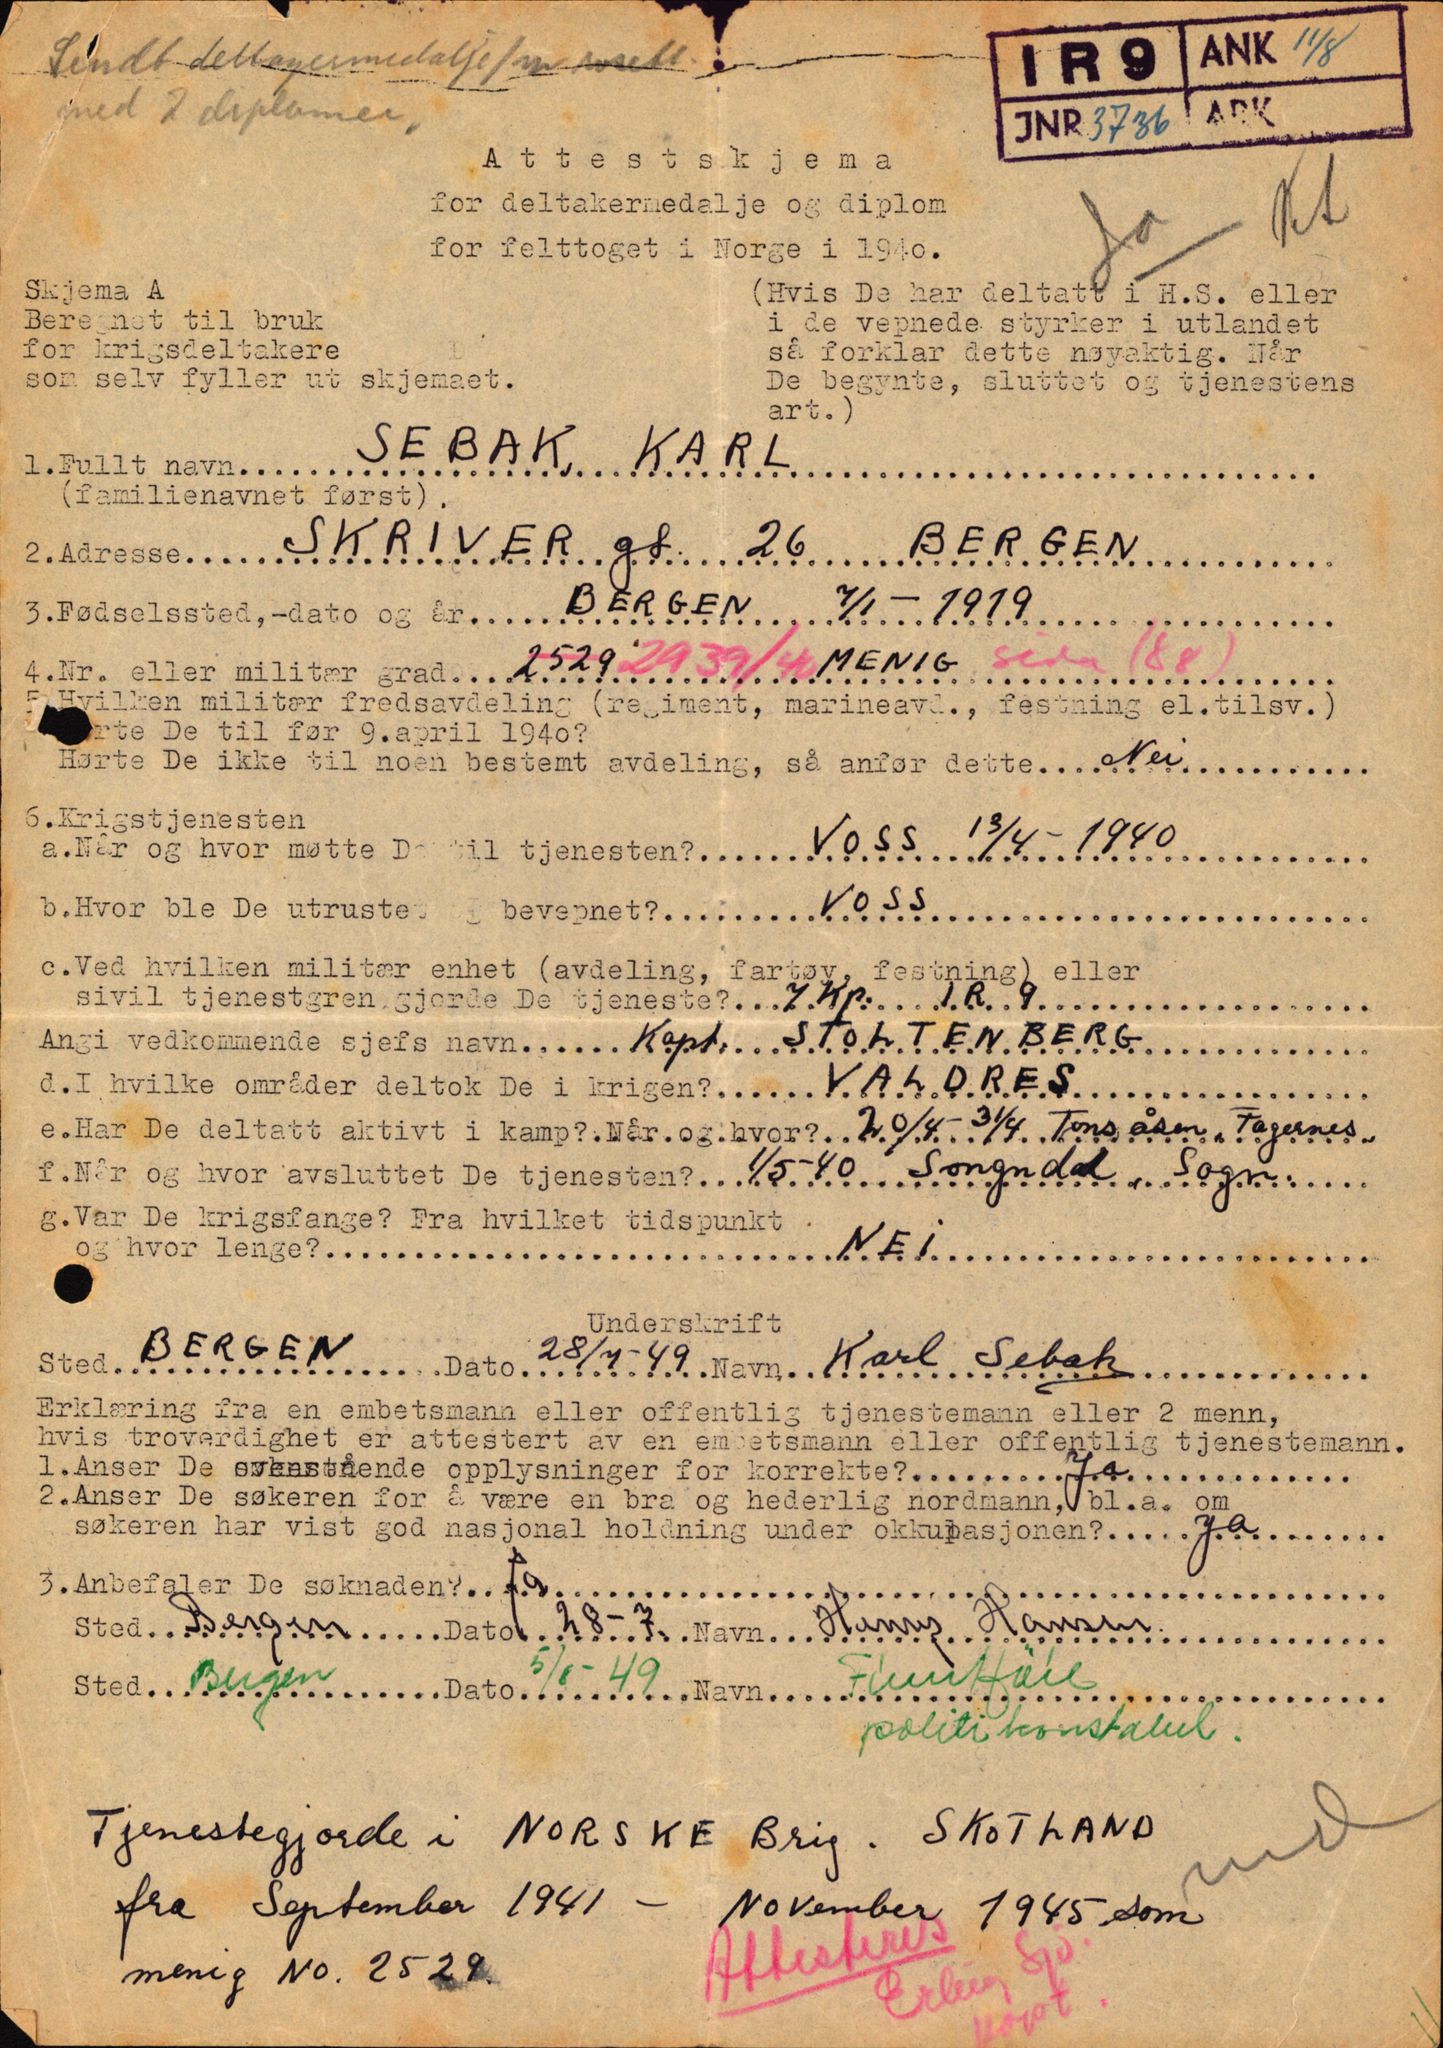 Sendt deltagermedalje/m rosett
med 2 diplomer.
IR9 ANK 11/8
JNR 3736 ARK
Attestskjema
for deltakermedalje og diplom
for felttoget i Norge i 1940.
Ja
Skjema A
Beregnet til bruk
for krigsdeltakere
som selv fyller ut skjemaet.
(Hvis De har deltatt i H.S. eller
i de vepnede styrker i utlandet
så forklar dette nøyaktig. Når
De begynte, sluttet og tjenestens
art.)
1.Fullt navn.... SEBAK, KARL
(familienavnet først).
2.Adresse.... SKRIVER gt. 26 BERGEN
3.Fødselssted,-dato og år.... BERGEN 7/1 - 1919
4.Nr. eller militær grad.... 2529 2939/40 MENIG side (88)
5.Hvilken militær fredsavdeling (regiment, marineavd., festning el.tilsv.)
rte De til før 9.april 1940?
Hørte De ikke til noen bestemt avdeling, så anfør dette.... Nei
6.Krigstjenesten
a.Når og hvor møtte De til tjenesten?.... VOSS 13/4 - 1940
b.Hvor ble De utrustet og bevepnet?.... VOSS
c.Ved hvilken militær enhet (avdeling, fartøy, festning) eller
sivil tjenestgren gjorde De tjeneste?... 7 Kp. I.R. 9
Angi vedkommende sjefs navn.... Kapt. STOLTENBERG
d.I hvilke områder deltok De i krigen?.... VALDRES
e.Har De deltatt aktivt i kamp?.Når.og.hvor?.. 20/4 - 31/4 Tonsåsen, Fagernes.
f.Når og hvor avsluttet De tjenesten?.... 1/5-40 Songndal, Sogn.
g.Var De krigsfange? Fra hvilket tidspunkt
og hvor lenge?.... NEI
Underskrift
Sted.. BERGEN ....Dato. 28/7-49 Navn.. Karl Sebak
Erklæring fra en embetsmann eller offentlig tjenestemann eller 2 menn,
hvis troverdighet er attestert av en embetsmann eller offentlig tjenestemann.
1.Anser De ovenstående opplysninger for korrekte?.... Ja
2.Anser De søkeren for å være en bra og hederlig nordmann, bl.a. om
søkeren har vist god nasjonal holdning under okkupasjonen?.... Ja
3.Anbefaler De søknaden?.. Ja
Sted.. Bergen ....Dato 28-7. Navn... Hansen
Sted.. Bergen ....Dato. 5/8-49 Navn...
politikonstabel.
Tjenestegjorde i NORSKE Brig. SKOTLAND
fra September 1941 - NOVember 1945 som
menig No. 2529.
Attesteres
Erling
kapt.